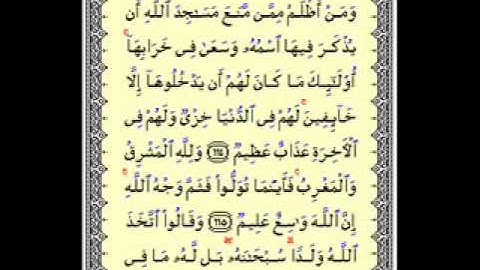 وَمَنْ أَظْلَمُ مِمَّن مَّنَعَ مَسَـٰجِدَ ٱللَّهِ أَن
يُذْكَرَ فِيهَا ٱسْمُهُۥ وَسَعَىٰ فِى خَرَابِهَآ ۚ
أُو۟لَـٰٓئِكَ مَا كَانَ لَهُمْ أَن يَدْخُلُوهَآ إِلَّا
خَآئِفِينَ ۚ لَهُمْ فِى ٱلدُّنْيَا خِزْىٌ وَلَهُمْ فِى
ٱلْـَٔاخِرَةِ عَذَابٌ عَظِيمٌ ١١٤ وَلِلَّهِ ٱلْمَشْرِقُ
وَٱلْمَغْرِبُ ۚ فَأَيْنَمَا تُوَلُّوا۟ فَثَمَّ وَجْهُ ٱللَّهِ ۚ
إِنَّ ٱللَّهَ وَٰسِعٌ عَلِيمٌ ١١٥ وَقَالُوا۟ ٱتَّخَذَ
ٱللَّهُ وَلَدًا ۗ سُبْحَـٰنَهُۥ ۖ بَل لَّهُۥ مَا فِى